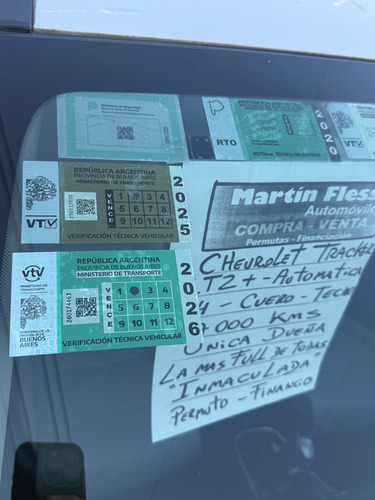 Ministerio de Seguridad
P
RTO
2020
REPÚBLICA ARGENTINA
PROVINCIA DE BUENOS AIRES
MINISTERIO DE TRANSPORTE
VENCE
1 3 4
5 6 7 8
9 10 11 12
2025
VTV
VERIFICACIÓN TÉCNICA VEHICULAR
vtv
MINISTERIO DE TRANSPORTE
GOBIERNO DE LA PROVINCIA DE
BUENOS AIRES
260174463
REPÚBLICA ARGENTINA
PROVINCIA DE BUENOS AIRES
MINISTERIO DE TRANSPORTE
VENCE
1 3 4
5 6 7 8
9 10 11 12
2026
VERIFICACIÓN TÉCNICA VEHICULAR
Martín Fless
Automóvile
COMPRA - VENTA
Permutas - Financiación
CHEVROLET TRACKER
LTZ + - AUTOMATICA
4 - CUERO - TECHO
000 KMS
UNICA DUEÑA
LA MAS FULL DE TODAS
"INMACULADA"
PERMUTO - FINANCIO